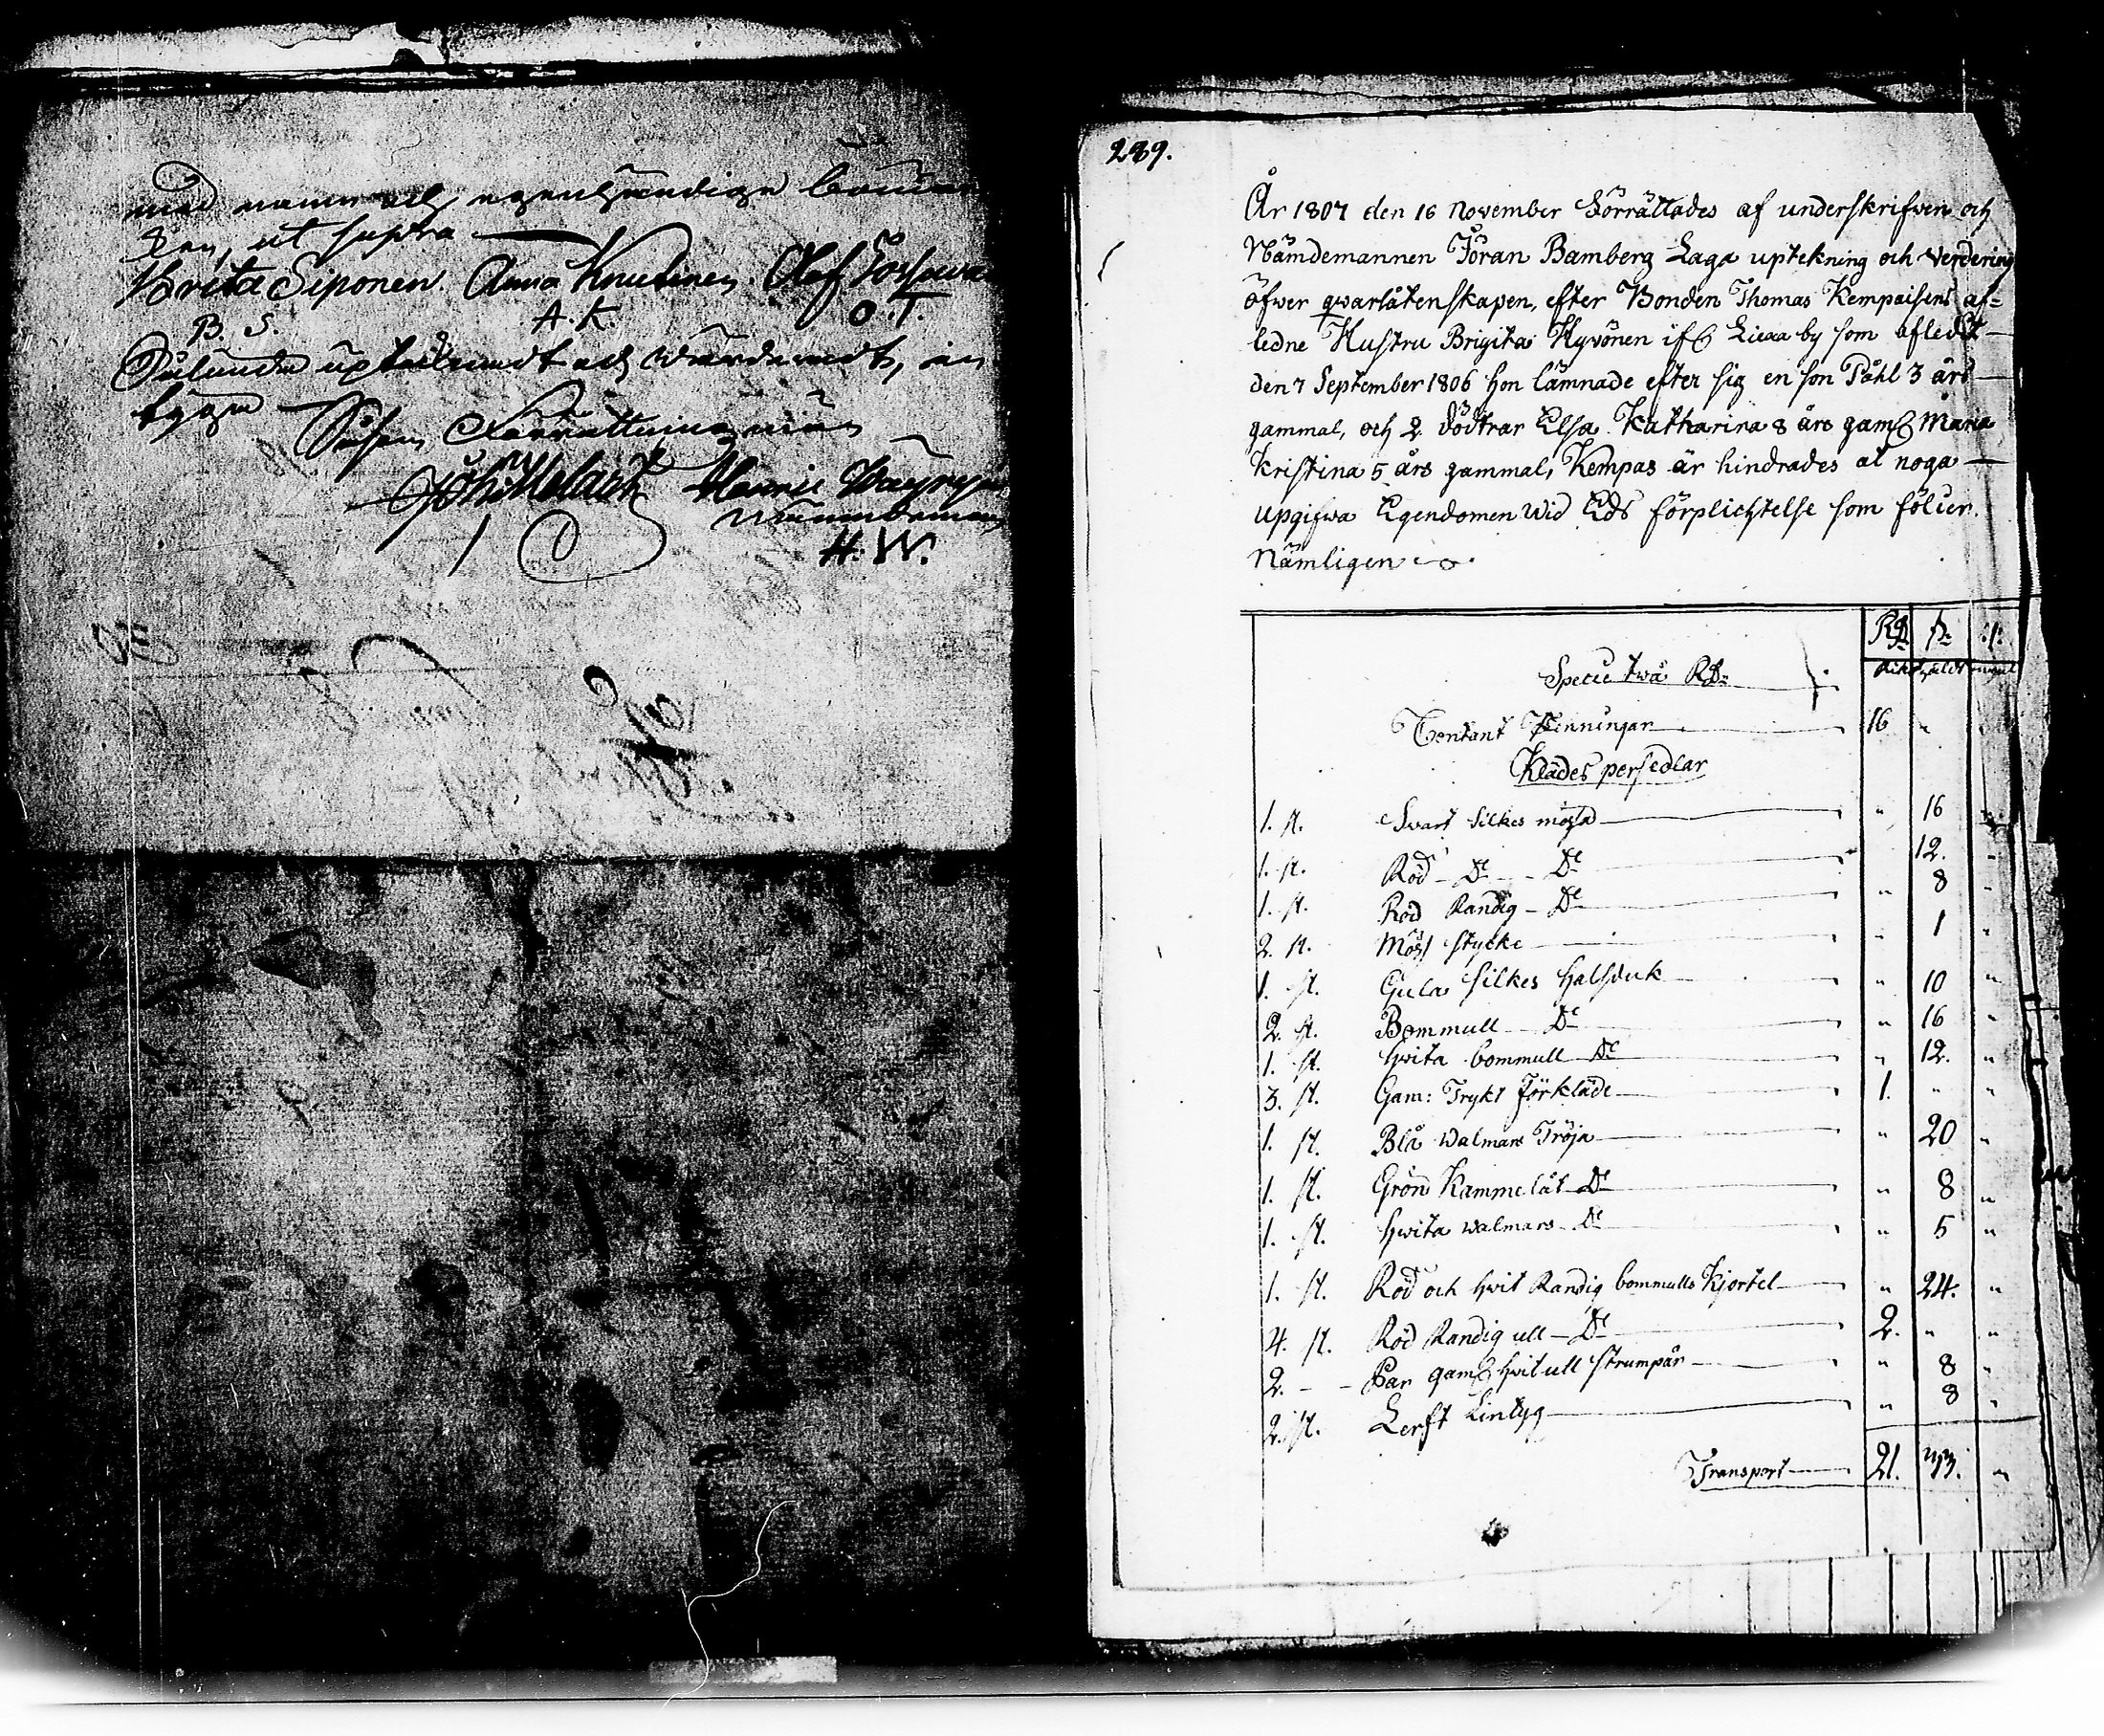 med namn och egenhändige bomär
ken, ut supra
Brita Siponen Anna Knutinen Olof
B. S. A. K. O. T.
Sålunda uptecknadt och värderadt,
tyga
Förrättningsmän
Henric Väyryn
Nämndeman
H. W.
289.
År 1807 den 16 November Förrättades af underskrifven och
Nämdemannen Jöran Bamberg Laga uptekning och Verdering
öfwer qwarlåtenskapen, efter Bonden Thomas Kempaisens af=
ledne Hustru Brigita Hyvönen if Liexa by som afledit
den 7 September 1806 hon lämnade efter sig en son Påhl 3 års
gammal, och 2 Dödtrar Elsa Katharina 8 års gaml Maria
Kristina 5 års gammal, Kempas är hindrades at noga
upgifwa Egendomen Wid Eds förplichtelse som fölier.
Nämligen
RD s: r:
Specie twå RD:
Contant Penningar 16 "
Klädes persedlar
1. st. Svart Silkes mössa " 16 "
1. st. Röd Do Do 12. "
1. st. Röd Randig Do " 8 "
2. st. Möss stycke " 1 "
1. st. Gula silkes halsduk " 10 "
2. st. Bommull Do " 16 "
1. st. hvita bommull Do " 12. "
3. st. Gam: Trykt Förkläde 1. " "
1. st. Blå Walmars Tröja " 20 "
1. st. Grön Kammelåt Do " 8 "
1. st. hvita walmars Do " 5 "
1. st. Röd och hvit Randig bommulls Kjortel " 24. "
4. st. Röd Randig ull Do 2. " "
2. - - Par gaml hvit ull strumpår " 8 "
2. st. Lerft Lintyg " 8 "
Transport 21.